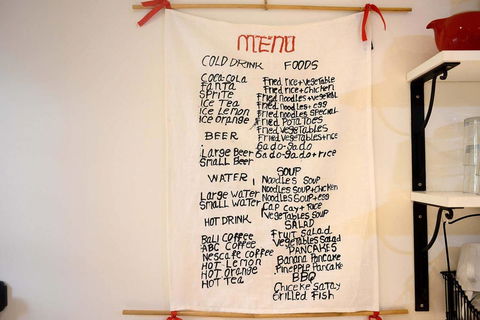 MENO
COLD DRINK
COCA-COLA
FANTA
SPRITE
ICE TEA
ICE LEMON
ICE ORANGE
BEER
LARGE BEER
SMALL BEER
WATER
LARGE WATER
SMALL WATER
HOT DRINK
BALI COFFEE
ABC COFFEE
NESCAFE COFFEE
HOT LEMON
HOT ORANGE
HOT TEA
FOODS
Fried rice + vegetable
Fried rice + chicken
Fried noodles + vegetabl
Fried noodles + egg
Fried noodles special
Fried POTATOES
Fried vegetables
Fried vegetables + rice
Gado-gado
Gado-gado + rice
SOUP
Noodles Soup
Noodles Soup + chicken
Noodles Soup + egg
Cap Cay + Rice
vegetables Soup
SALAD
Fruit Salad
vegetables Salad
PANCAKES
Banana Pancake
Pineapple Pancake
BBQ
Chiceke Satay
Grilled Fish